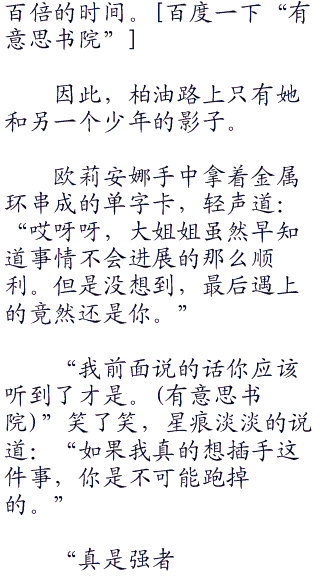 百倍的时间。[百度一下“有
意思书院”]
因此，柏油路上只有她
和另一个少年的影子。
欧莉安娜手中拿着金属
环串成的单字卡，轻声道：
“哎呀呀，大姐姐虽然早知
道事情不会进展的那么顺
利。但是没想到，最后遇上
的竟然还是你。”
“我前面说的话你应该
听到了才是。(有意思书
院)”笑了笑，星痕淡淡的说
道：“如果我真的想插手这
件事，你是不可能跑掉
的。”
“真是强者